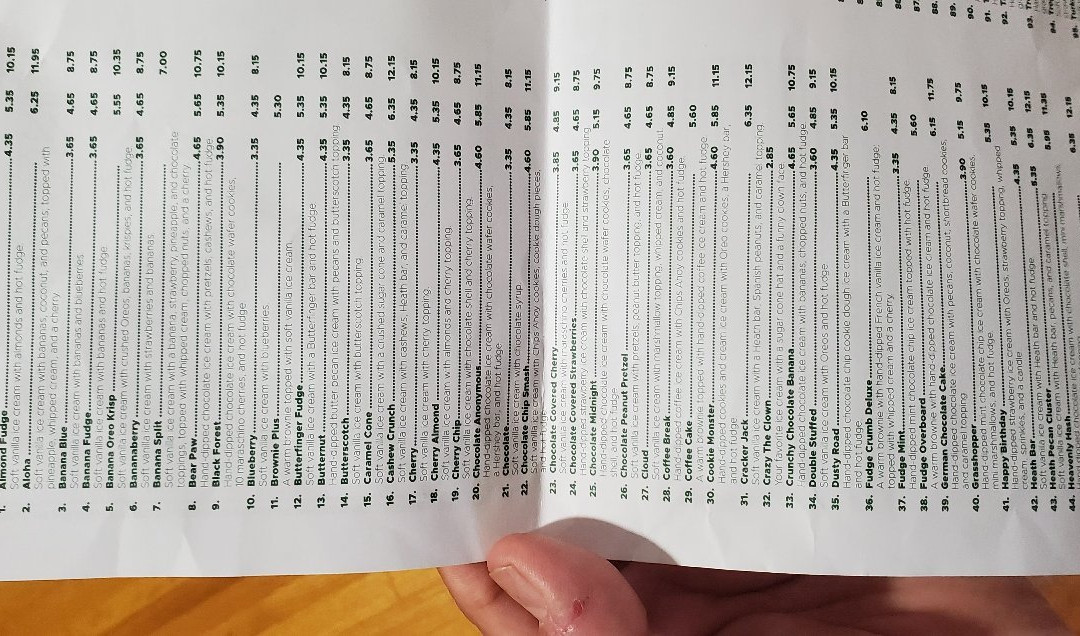 1. Almond Fudge 4.35 5.35 10.15
Soft vanilla ice cream with almonds and hot fudge
2. Aloha 6.25 11.95
Soft vanilla ice cream with bananas, coconut, and pecans, topped with
pineapple, whipped cream, and a cherry
3. Banana Blue 3.65 4.65 8.75
Soft vanilla ice cream with bananas and blueberries
4. Banana Fudge 3.65 4.65 8.75
Soft vanilla ice cream with bananas and hot fudge
5. Banana Oreo Krisp 5.55 10.35
Soft vanilla ice cream with crushed Oreos, bananas, krispies, and hot fudge
6. Bananaberry 3.65 4.65 8.75
Soft vanilla ice cream with strawberries and bananas
7. Banana Split 7.00
Soft vanilla ice cream with a banana, strawberry, pineapple, and chocolate
topping, topped with whipped cream, chopped nuts, and a cherry
8. Bear Paw 4.65 5.65 10.75
Hand-dipped chocolate ice cream with pretzels, cashews, and hot fudge
9. Black Forest 3.90 5.35 10.15
Hand-dipped chocolate ice cream with chocolate wafer cookies,
maraschino cherries and hot fudge
10. Blueberry 3.35 4.35 8.15
Soft vanilla ice cream with blueberries
11. Brownie Plus 5.30
A warm brownie topped with soft vanilla ice cream
12. Butterfinger Fudge 4.35 5.35 10.15
Soft vanilla ice cream with a Butterfinger bar and hot fudge
13. Butter Pecan 4.35 5.35 10.15
Hand-dipped butter pecan ice cream with pecans and butterscotch topping
14. Butterscotch 3.35 4.35 8.15
Soft vanilla ice cream with butterscotch topping
15. Caramel Cone 3.65 4.65 8.75
Soft vanilla ice cream with a crushed sugar cone and caramel topping
16. Cashew Crunch 5.35 6.35 12.15
Soft vanilla ice cream with cashews, Heath bar, and caramel topping
17. Cherry 3.35 4.35 8.15
Soft vanilla ice cream with cherry topping
18. Cherry Almond 4.35 5.35 10.15
Soft vanilla ice cream with almonds and cherry topping
19. Cherry Chip 3.65 4.65 8.75
Soft vanilla ice cream with chocolate shell and cherry topping
20. Chocolate Anonymous 4.60 5.85 11.15
Hand-dipped chocolate ice cream with chocolate wafer cookies,
a Hershey bar, and hot fudge
21. Chocolate 3.35 4.35 8.15
Soft vanilla ice cream with chocolate syrup
22. Chocolate Chip Smash 4.60 5.85 11.15
Soft vanilla ice cream with Chips Ahoy cookies, cookie dough pieces,
and hot fudge
23. Chocolate Covered Cherry 3.85 4.85 9.15
Soft vanilla ice cream with maraschino cherries and hot fudge
24. Chocolate Covered Strawberries 3.65 4.65 8.75
Hand-dipped strawberry ice cream with chocolate shell and strawberry topping
25. Chocolate Midnight 3.90 5.15 9.75
Hand-dipped chocolate ice cream with chocolate wafer cookies, chocolate
shell, and hot fudge
26. Chocolate Peanut Pretzel 3.65 4.65 8.75
Soft vanilla ice cream with pretzels, peanut butter topping, and hot fudge
27. Cloud 9 3.65 4.65 8.75
Soft vanilla ice cream with marshmallow topping, whipped cream, and coconut
28. Coffee Break 3.60 4.85 9.15
Hand-dipped coffee ice cream with Chips Ahoy cookies and hot fudge
29. Coffee Cake 5.60
A warm brownie topped with hand-dipped coffee ice cream and hot fudge
30. Cookie Monster 4.60 5.85 11.15
Hand-dipped cookies and cream ice cream with Oreo cookies, a Hershey bar,
and hot fudge
31. Cracker Jack 6.35 12.15
Soft vanilla ice cream with a Heath bar, Spanish peanuts, and caramel topping
32. Crazy The Clown 2.85
Your favorite ice cream with a sugar cone hat and a funny clown face
33. Crunchy Chocolate Banana 4.65 5.65 10.75
Hand-dipped chocolate ice cream with bananas, chopped nuts, and hot fudge
34. Double Stuffed 3.60 4.85 9.15
Soft vanilla ice cream with Oreos and hot fudge
35. Dusty Road 4.35 5.35 10.15
Hand-dipped chocolate chip cookie dough ice cream with a Butterfinger bar
and hot fudge
36. Fudge Bomb Deluxe 6.10
A warm brownie with hand-dipped French vanilla ice cream and hot fudge,
topped with whipped cream and a cherry
37. Fudge Mint 3.35 4.35 8.15
Hand-dipped mint chocolate chip ice cream topped with hot fudge
38. Fudge Overboard 5.60
A warm brownie with hand-dipped chocolate ice cream and hot fudge
39. German Chocolate Cake 6.15 11.75
Hand-dipped chocolate ice cream with pecans, coconut, shortbread cookies,
and caramel topping
40. Grasshopper 3.90 5.15 9.75
Hand-dipped mint chocolate chip ice cream with chocolate wafer cookies,
marshmallows, and hot fudge
41. Happy Birthday 5.35 10.15
Hand-dipped strawberry ice cream with Oreos, strawberry topping, whipped
cream, sprinkles, and a candle
42. Heath Bar 4.35 5.35 10.15
Soft vanilla ice cream with Heath bar and hot fudge
43. Heath Bar Cluster 5.35 6.35 12.15
Soft vanilla ice cream with Heath bar, pecans, and caramel topping
44. Heavenly 5.95 11.35
chocolate ice cream with chocolate shell, mini marshmallows,
6.35 12.15
89.
90.
91.
92.
93.
94.
95.